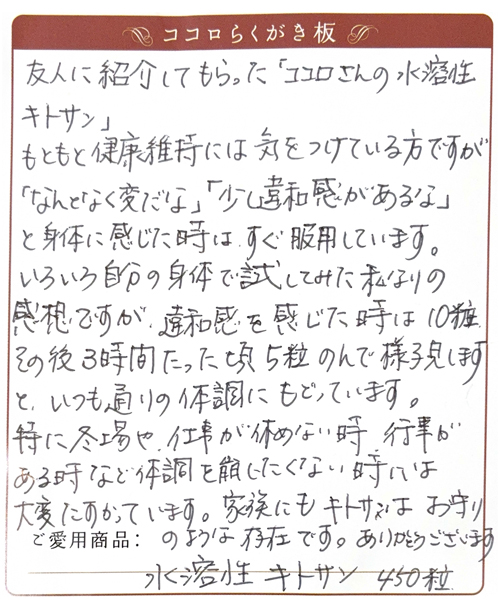 ココロらくがき板
友人に紹介してもらった「ココロさんの水溶性
キトサン」
もともと健康維持には気をつけている方ですが
「なんとなく変だな」「少し違和感があるな」
と身体に感じた時は、すぐ服用しています。
いろいろ自分の身体で試してみた私なりの
感想ですが、違和感を感じた時は10粒
その後3時間たった頃5粒のんで様子見します
と、いつも通りの体調にもどっています。
特に冬場や、仕事が休めない時、行事が
ある時など体調を崩したくない時には
大変たすかっています。家族にもキトサンは お守り
のような存在です。ありがとうございます
ご愛用商品：
水溶性 キトサン 450粒